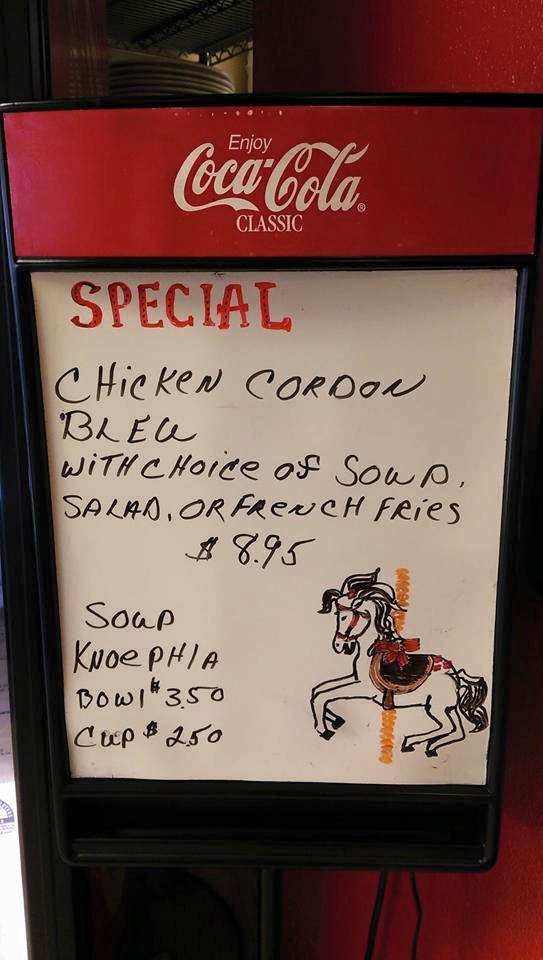 Enjoy
Coca-Cola®
CLASSIC
SPECIAL
CHicKeN CORDON
BLEU
WiTH CHOice OF SOUP,
SALAD, OR FRENCH FRies
$ 8.95
SOUP
KNOePHLA
BOWl $ 3.50
CUP $ 2.50